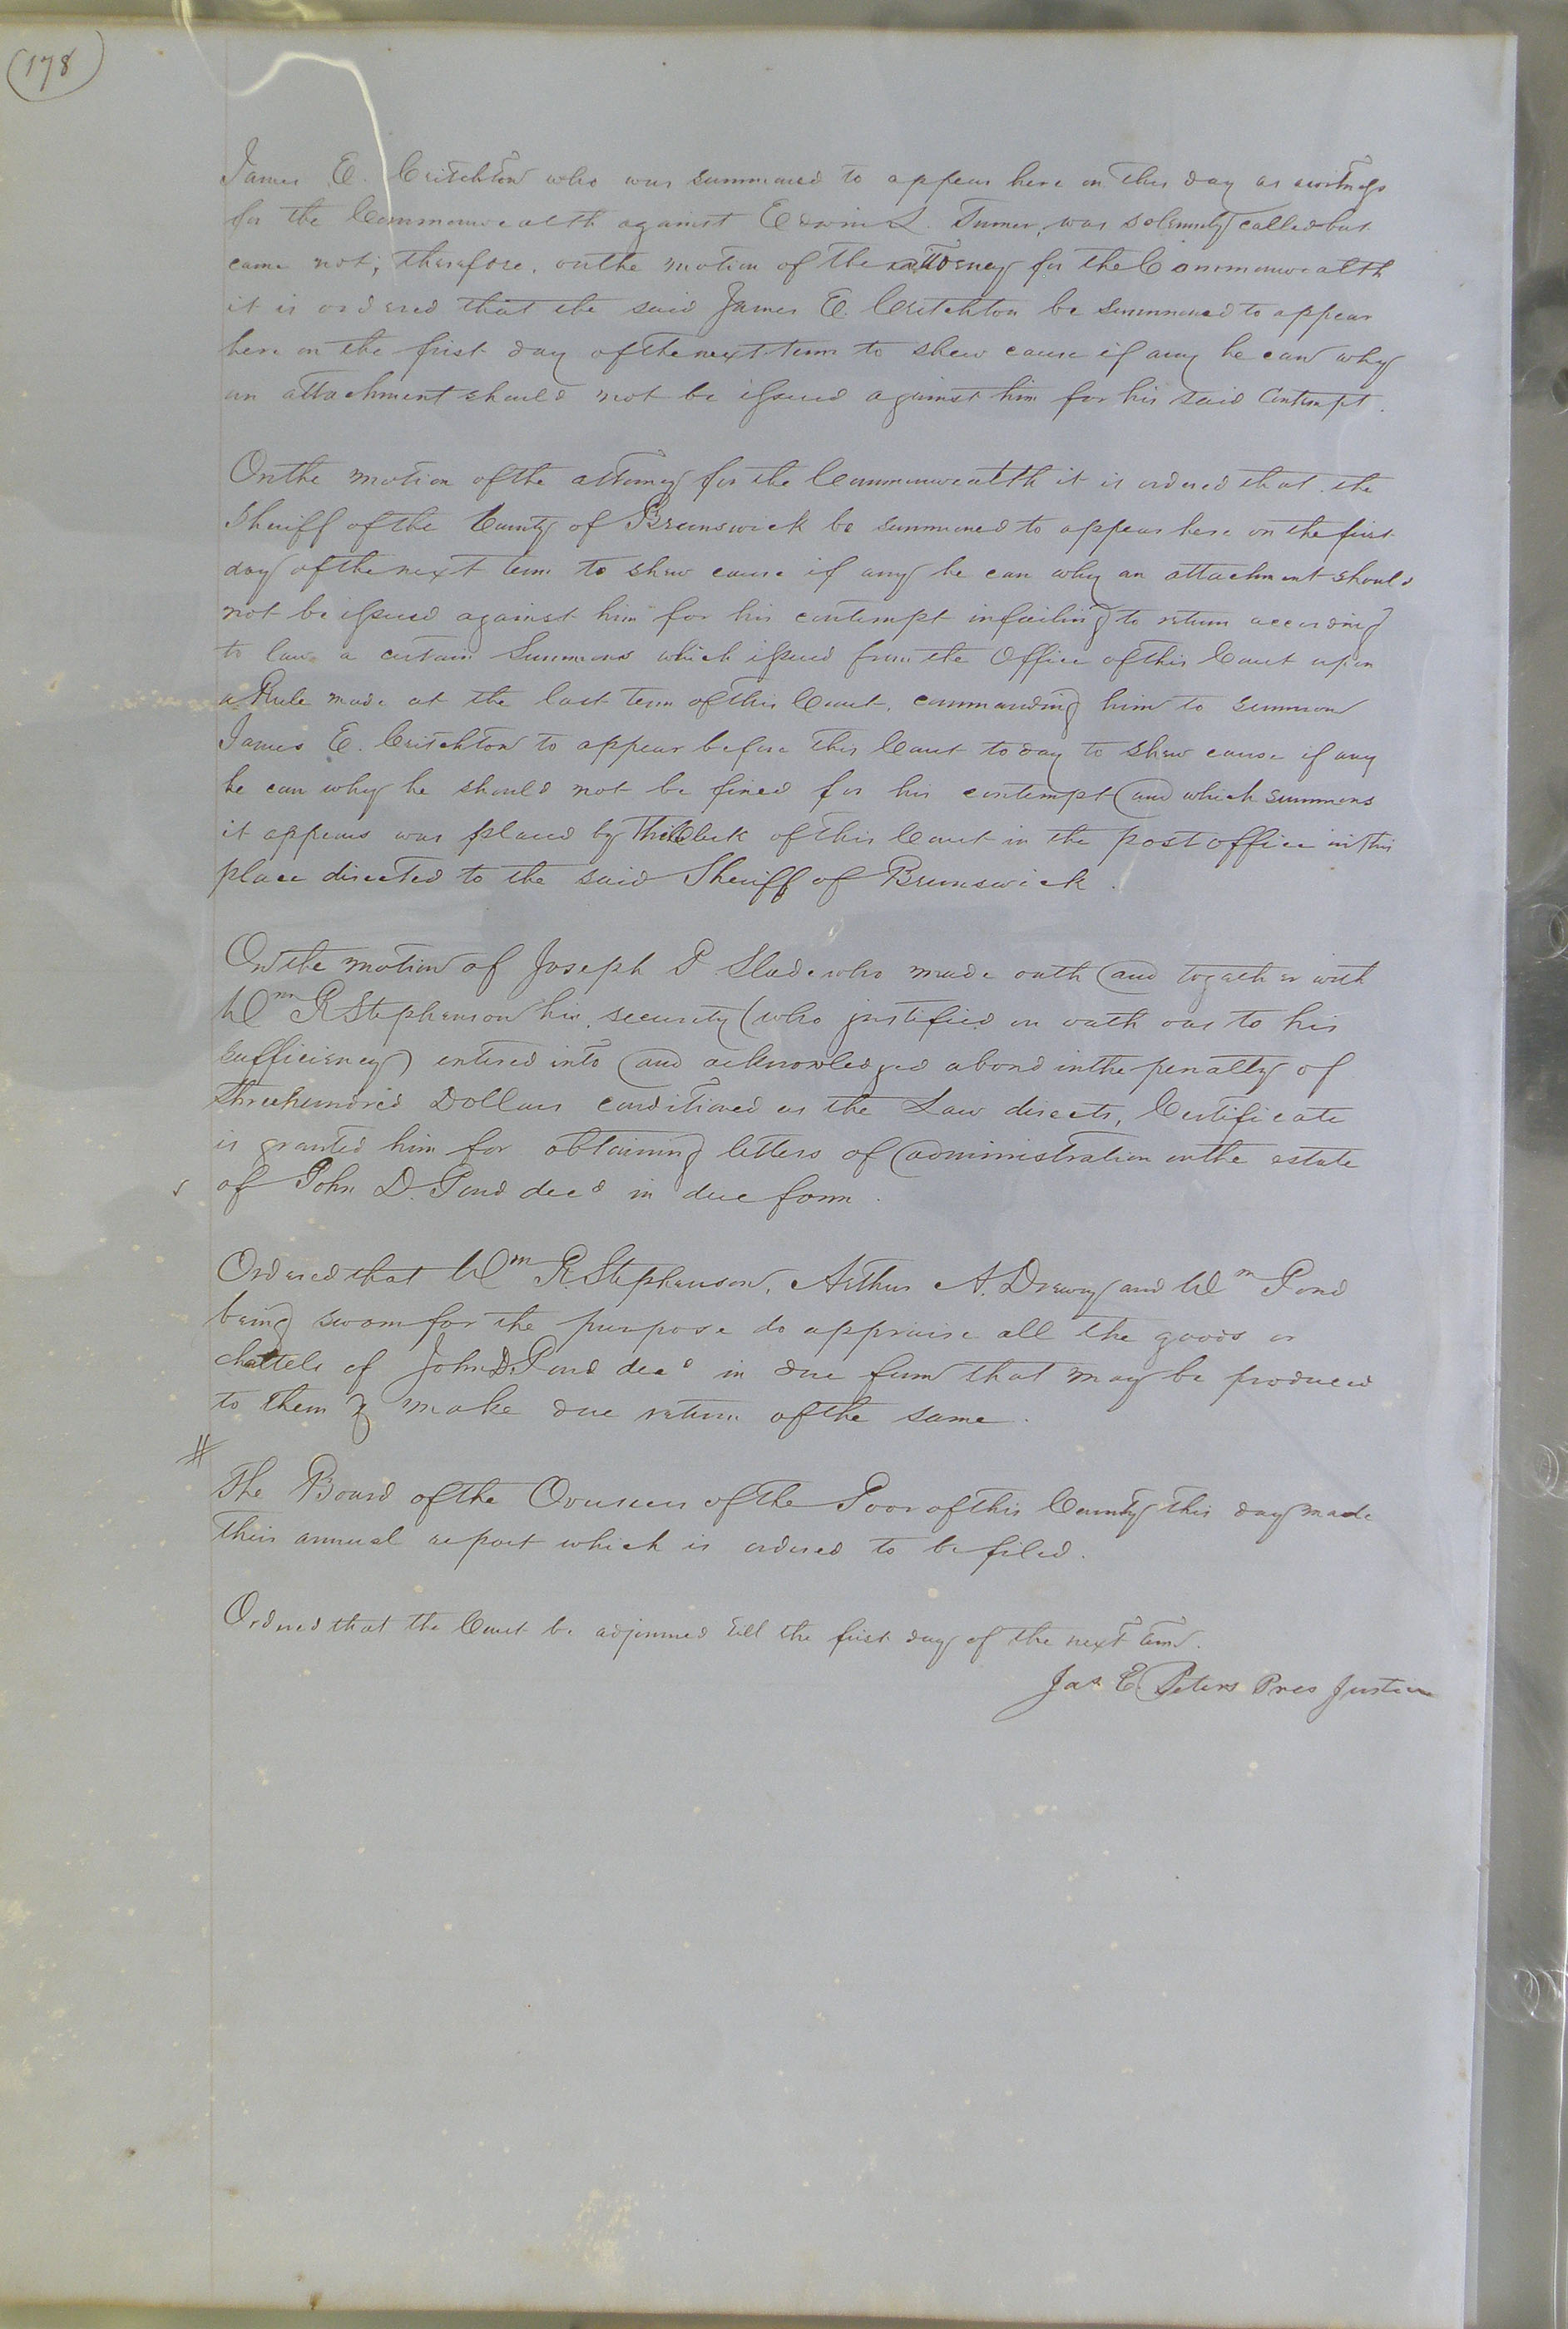 (178)
James E. Critchton who was summoned to appear here on this day as a witness
for the Commonwealth against Edwin L. Turner, was solemnly called but
came not; therefore, on the motion of the attorney for the Commonwealth
it is ordered that the said James E. Critchton be summoned to appear
here on the first day of the next term to shew cause if any he can why
an attachment should not be issued against him for his said Contempt.
On the motion of the attorney for the Commonwealth it is ordered that the
Sheriff of the County of Brunswick be summoned to appear here on the first
day of the next term to shew cause if any he can why an attachment should
not be issued against him for his contempt in failing to return according
to law a certain Summons which issued from the Office of this Court upon
a Rule made at the last term of this Court, commanding him to summon
James E. Critchton to appear before this Court today to shew cause if any
he can why he should not be fined for his contempt and which summons
it appears was placed by the Clerk of this Court in the post office in this
place directed to the said Sheriff of Brunswick.
On the motion of Joseph P. Slade who made oath and together with
Wm R Stephenson his security (who justified on oath as to his
sufficiency) entered into and acknowledged a bond in the penalty of
three hundred Dollars conditioned as the Law directs, Certificate
is granted him for obtaining letters of administration on the estate
of John D. Pond decd in due form.
Ordered that Wm R. Stephenson, Arthur A. Drewry and Wm Pond
being sworn for the purpose do appraise all the goods or
chattels of John D. Pond decd in due form that may be produced
to them & make due return of the same.
#
The Board of the Overseers of the Poor of this County this day made
their annual report which is ordered to be filed.
Ordered that the Court be adjourned till the first day of the next term.
Jas E. Peters Pres Justice